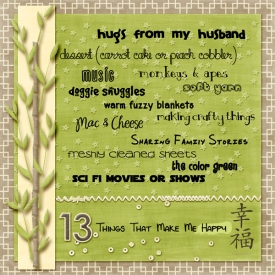 hugs from my husband
dessert (carrot cake or peach cobbler)
music
monkeys & apes
doggie snuggles
soft yarn
warm fuzzy blankets
Mac & Cheese
making crafty things
Sharing Family Stories
freshly cleaned sheets
the color green
sci fi movies or shows
13 Things That Make Me Happy
幸福